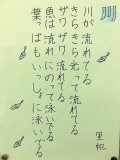 川
川が流れてる
きらきら光って流れてる
ザワザワ流れてる
魚は流れにのって泳いでる
葉っぱもいっしょに泳いでる